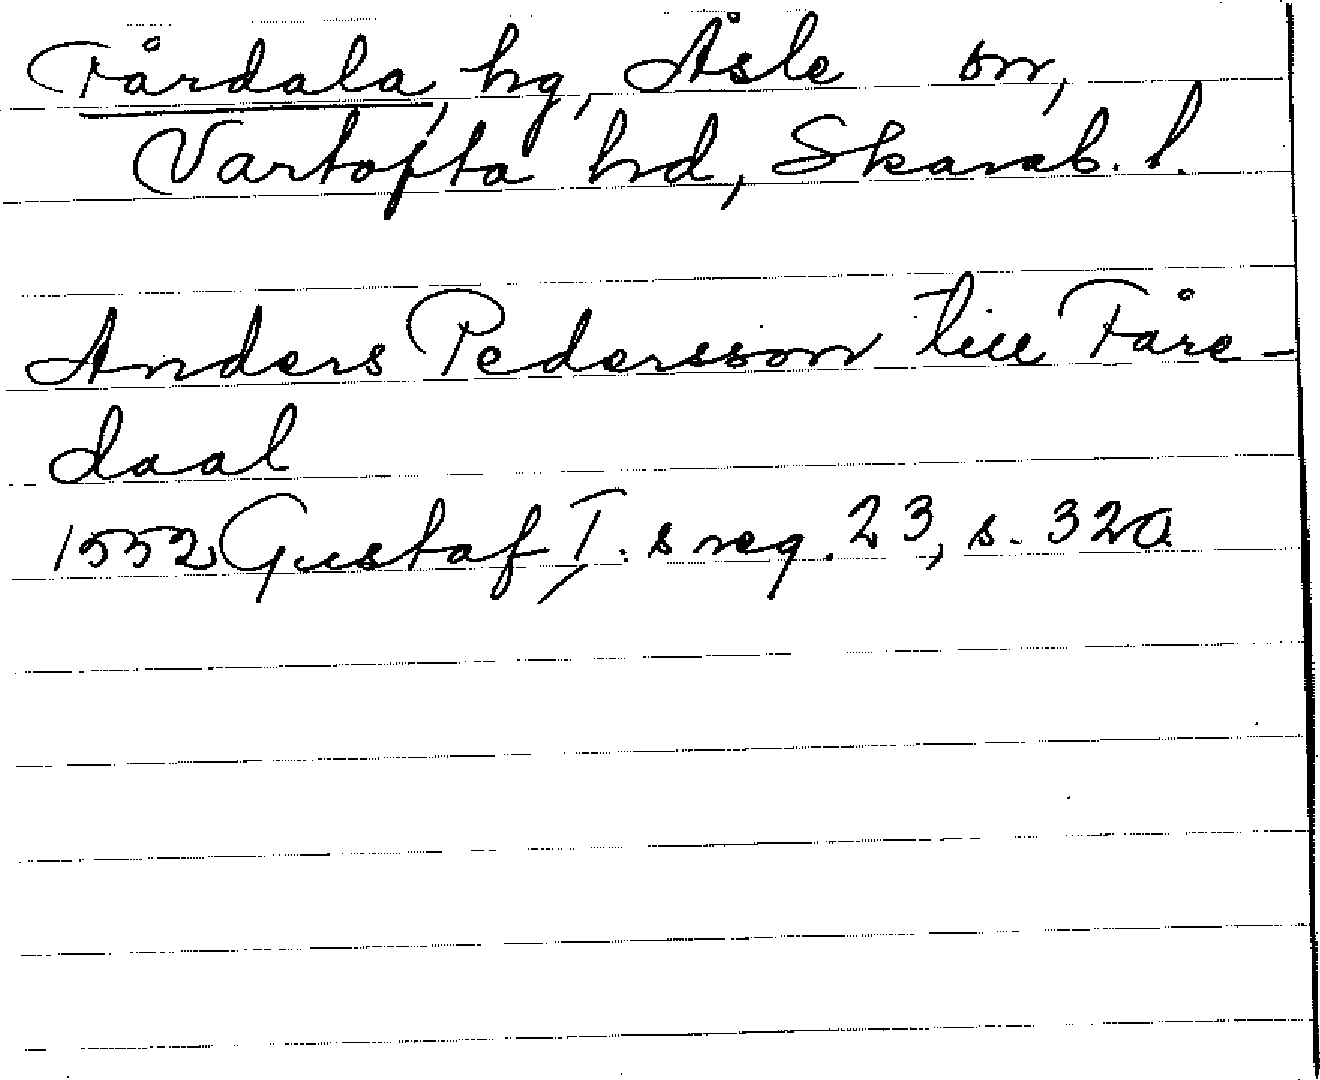 Fårdala, hg, Åsle sn,
Vartofta hd, Skarab. l.
Anders Pedersson till Fåre-
daal
1552 Gustaf I:s reg. 23, s. 320